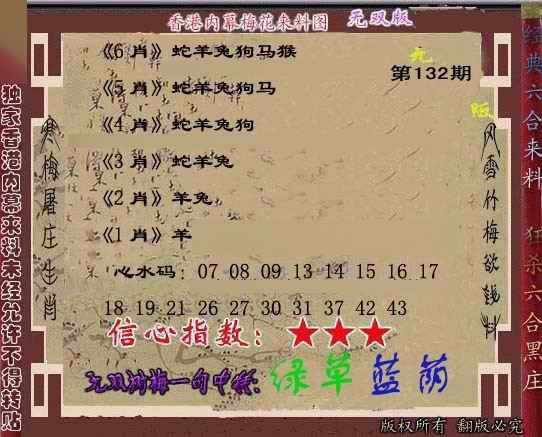 香港内幕梅花来料图 无双版
《6 肖》蛇羊兔狗马猴
第132期
《5 肖》蛇羊兔狗马
《4 肖》蛇羊兔狗
《3 肖》蛇羊兔
《2 肖》羊兔
《1 肖》羊
心水码： 07 08 09 13 14 15 16 17
18 19 21 26 27 30 31 37 42 43
信心指数：★★★
无双测梅一句中特：绿草蓝荫
版权所有 翻版必究
独家香港内幕来料未经允许不得转贴
寒梅屠庄生肖
风雪竹梅欲钱料
无
版
经典六合来料
狂杀六合黑庄